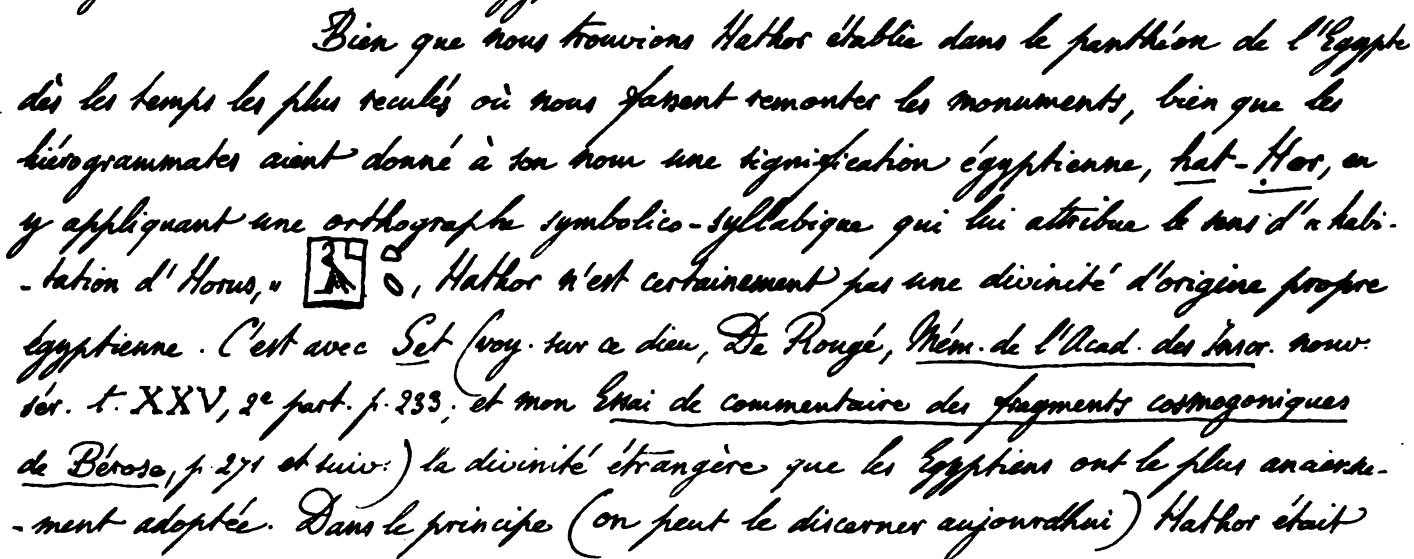 Bien que nous trouvions Hathor établie dans le panthéon de l'Égypte
dès les temps les plus reculés où nous fassent remonter les monuments, bien que les
hiérogrammates aient donné à son nom une signification égyptienne, hat-Ḥor, en
y appliquant une orthographe symbolico-syllabique qui lui attribue le sens d'« habi-
-tation d'Horus, » , Hathor n'est certainement pas une divinité d'origine propre
égyptienne. C'est avec Set (voy. sur ce dieu, De Rougé, Mém. de l'Acad. des Inscr. nouv.
sér. t. XXV, 2e part. p. 233; et mon Essai de commentaire des fragments cosmogoniques
de Bérose, p. 271 et suiv.) la divinité étrangère que les Égyptiens ont le plus anciene-
-ment adoptée. Dans le principe (on peut le discerner aujourdhui) Hathor était